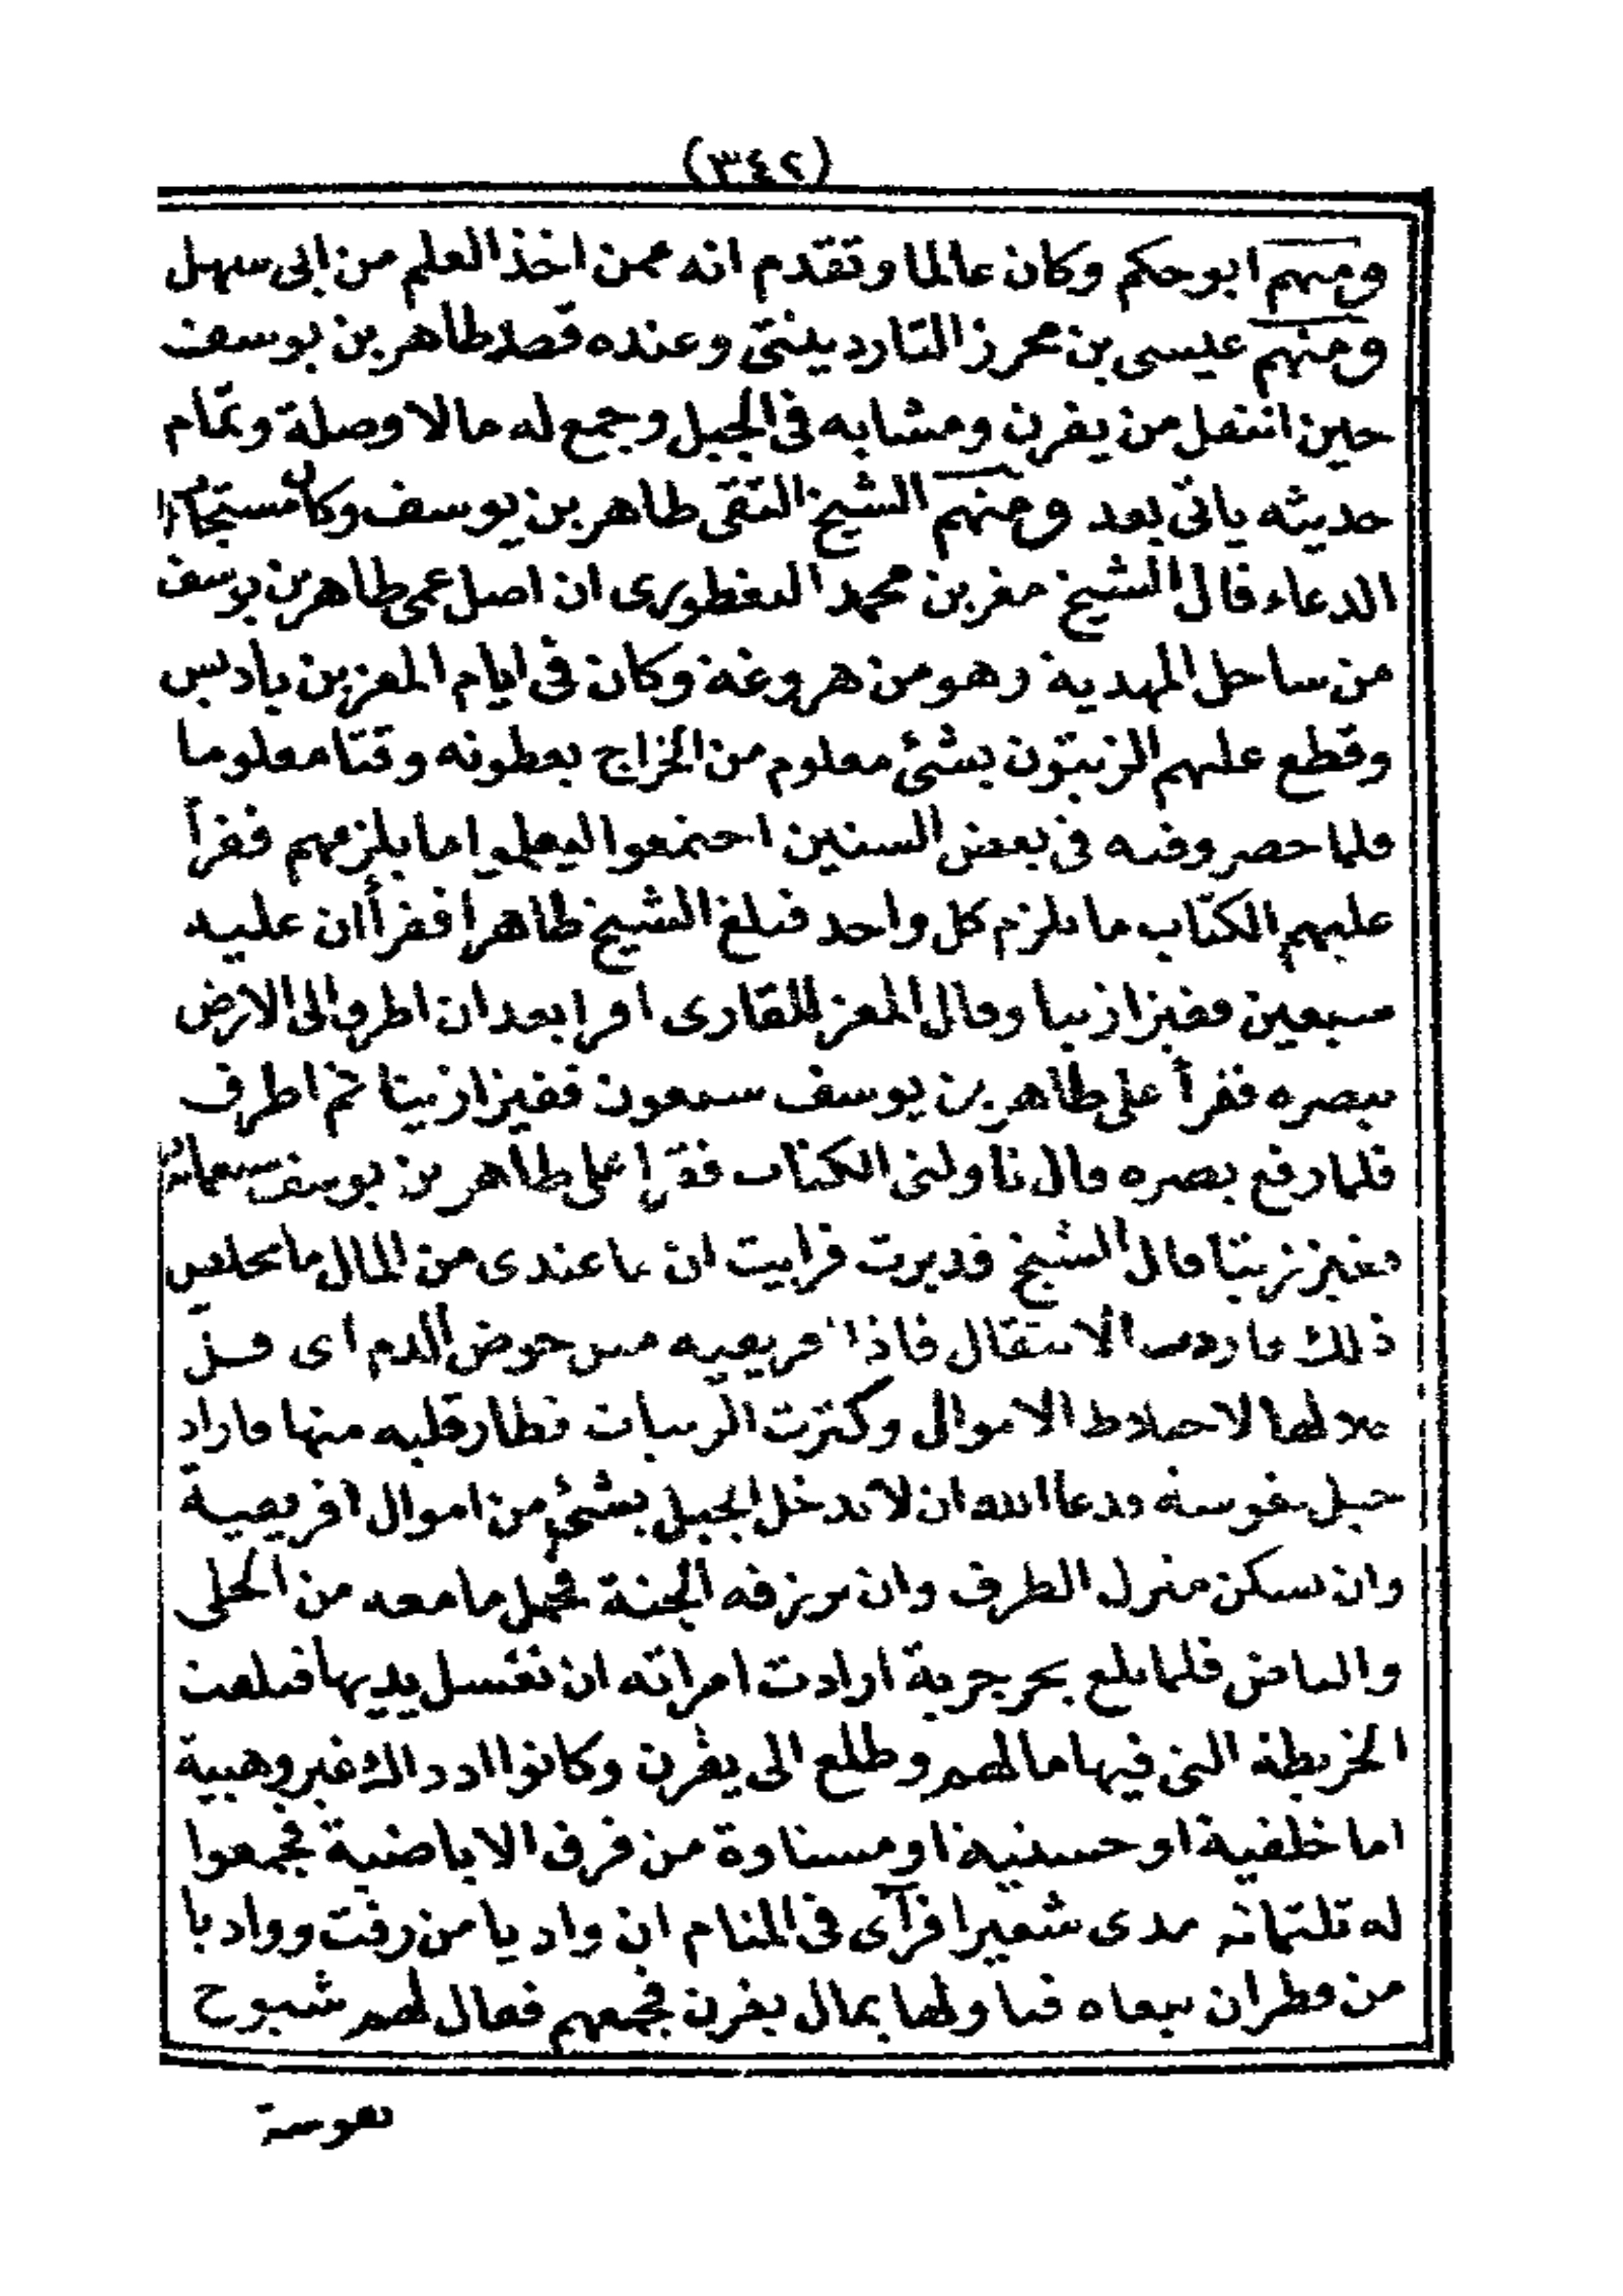 (٣٤٢)
ومنهم ابو حكم وكان عالما وتقدم انه ممن اخذ العلم من ابى سهل
ومنهم عيسى بن محرز التاردينتى وعنده قصد طاهر بن يوسف
حين انتقل من يفرن ومشابه فى الجبل وجمع له مالا وصلة وتمام
حديثه ياتى بعد ومنهم الشيخ التقى طاهر بن يوسف وكان مستجاب
الدعاء قال الشيخ مقرين محمد البغطورى ان اصل عمى طاهر بن يوسف
من ساحل المهدية وهو من هروغة وكان فى ايام المعز بن باديس
وقطع عليهم الزيتون بشئ معلوم من الخراج يعطونه وقتا معلوما
فلما حصروفيه فى بعض السنين اجتمعوا ليعلموا ما يلزمهم فقرأ
عليهم الكتاب ما يلزم كل واحد فبلغ الشيخ طاهرا فقرأ ان عليه
سبعين قفيزا زيتا وقال المعز للقارى اقرا بعد ان اطرق الى الارض
ببصره فقرأ على طاهر بن يوسف سبعون قفيزا زيتا ثم اطرق
فلما رفع بصره قال ناولنى الكتاب فقرا على طاهر بن يوسف سبعمائة
قفيز زيتا قال الشيخ فدبرت فرايت ان ما عندى من المال ما يخلص
ذلك فاردت الانتقال فاذا افريقية مس حوض الدم اى قلّ
حلالها لاختلاط الاموال وكثرت الريبات فطار قلبه منها فاراد
جبل نفوسة ودعا الله ان لا تدخل الجبل بشئ من اموال افريقية
وان يسكن منزل الطرف وان يرزقه الجنة فحمل ما معه من الحلى
والناض فلما بلغ بحر جربة ارادت امراته ان تغسل يديها فبلعت
الخريطة التى فيها مالهم وطلع الى يفرن وكانوا اذ ذاك غير وهبية
اما خلفية او حسنية او مستاوة من فرق الاباضية فجمعوا
له ثلثمائة مدى شعيرا فرآى فى المنام ان واديا من زفت وواديا
من قطران تبعاه فتاولها بمال يفرن فجمعهم فقال لهم شيوخ
نفوسة